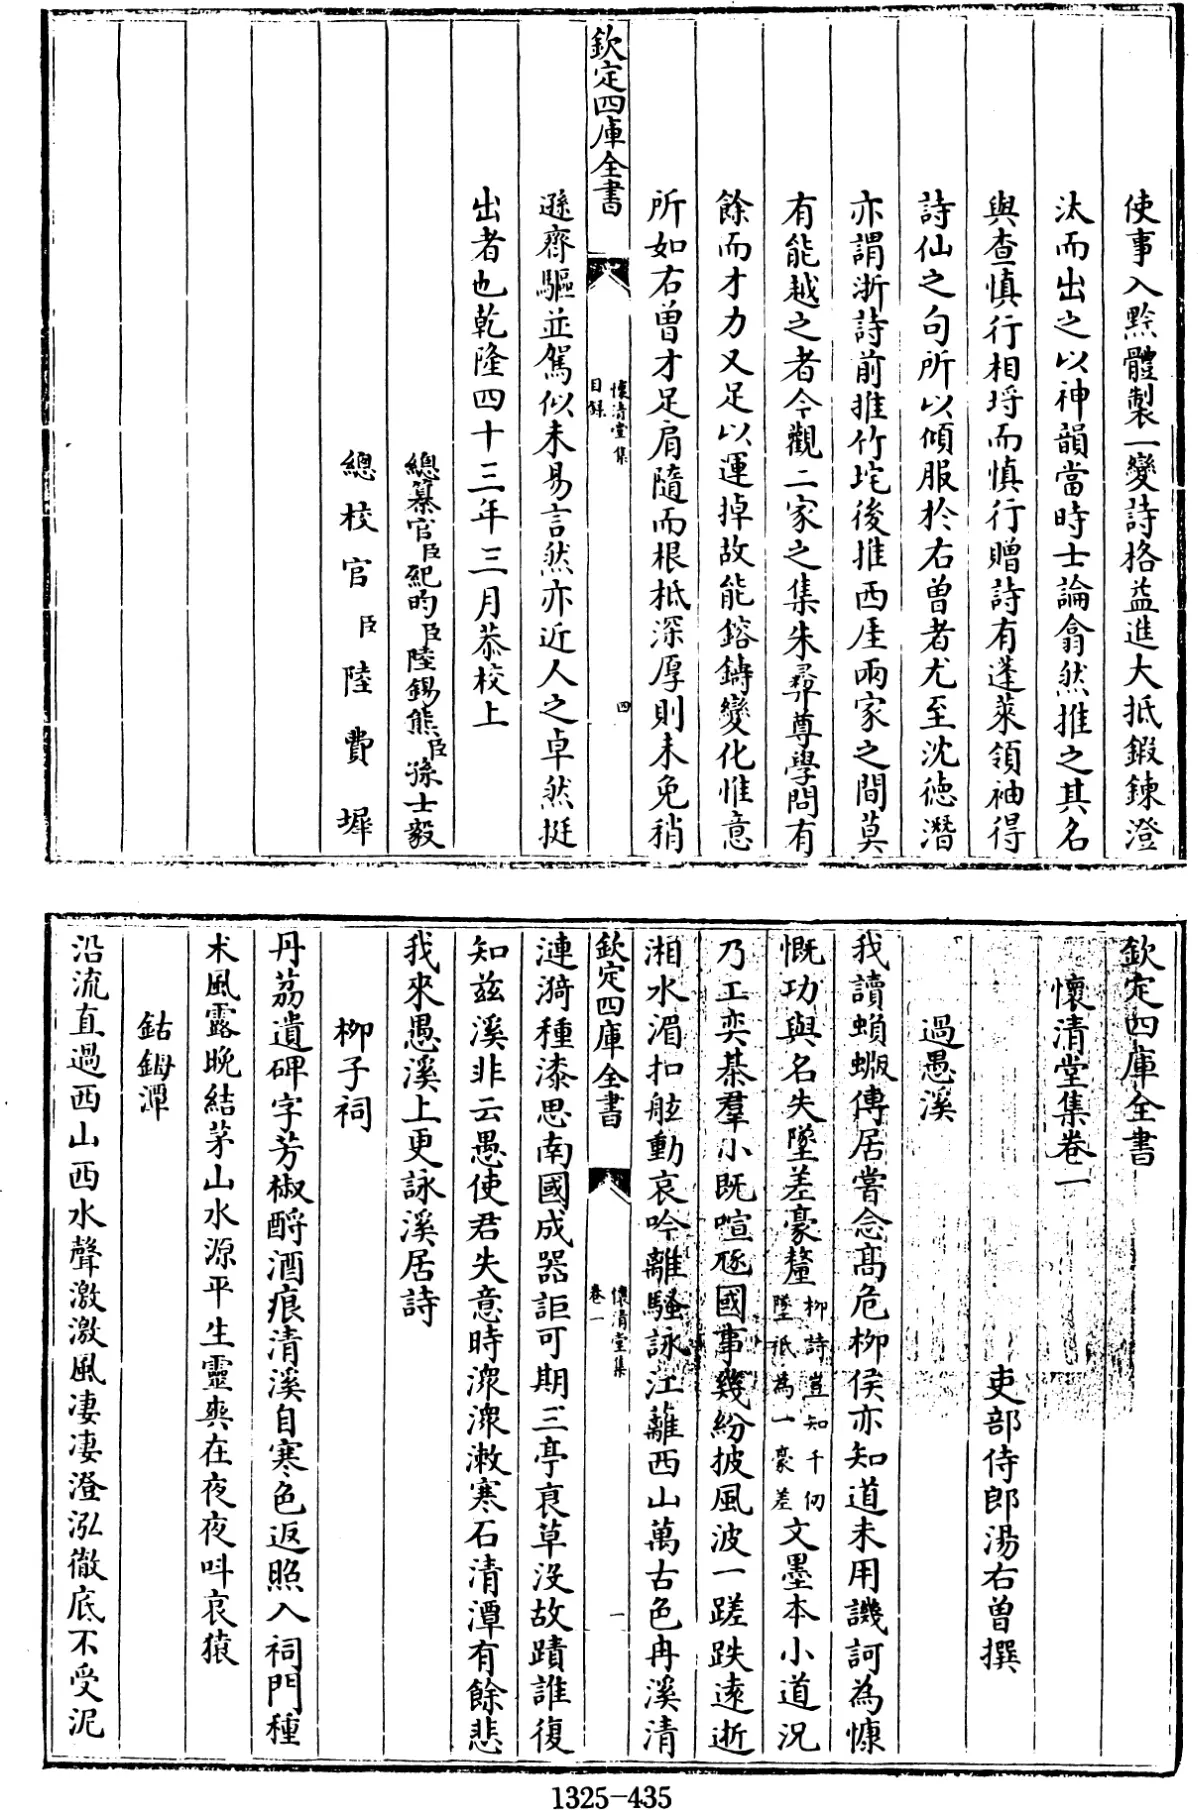 使事入黔體製一變詩格益進大抵鍛鍊澄
汰而出之以神韻當時士論翕然推之其名
與查慎行相埒而慎行贈詩有蓬萊領袖得
詩仙之句所以傾服於右曽者尤至沈徳潛
亦謂浙詩前推竹垞後推西厓兩家之間莫
有能越之者今觀二家之集朱彛尊學問有
餘而才力又足以運掉故能鎔鑄變化惟意
所如右曽才足肩隨而根柢深厚則未免稍
欽定四庫全書
懷清堂集
目録
四
遜齊驅並駕似未易言然亦近人之卓然挺
出者也乾隆四十三年三月恭校上
總纂官臣紀昀臣陸錫熊臣孫士毅
總校官臣陸費墀
欽定四庫全書
懷清堂集卷一
吏部侍郎湯右曽撰
過愚溪
我讀蝜蝂傳居嘗念髙危栁侯亦知道未用譏訶為慷
慨功與名失墜差豪釐栁詩豈知千仞墜祇為一豪差文墨本小道况
乃工奕棊羣小既喧豗國事幾紛披風波一蹉跌遠逝
湘水湄扣舷動哀吟離騷詠江蘺西山萬古色冉溪清
欽定四庫全書
懷清堂集
卷一
一
漣漪種漆思南國成器詎可期三亭裒草没故蹟誰復
知兹溪非云愚使君失意時㵗㵗潄寒石清潭有餘悲
我來愚溪上更詠溪居詩
栁子祠
丹茘遺碑字芳椒酹酒痕清溪自寒色返照入祠門種
术風露晚結茅山水源平生靈爽在夜夜呌哀猿
鈷鉧潭
沿流直過西山西水聲激激風凄凄澄泓徹底不受泥
1325-435